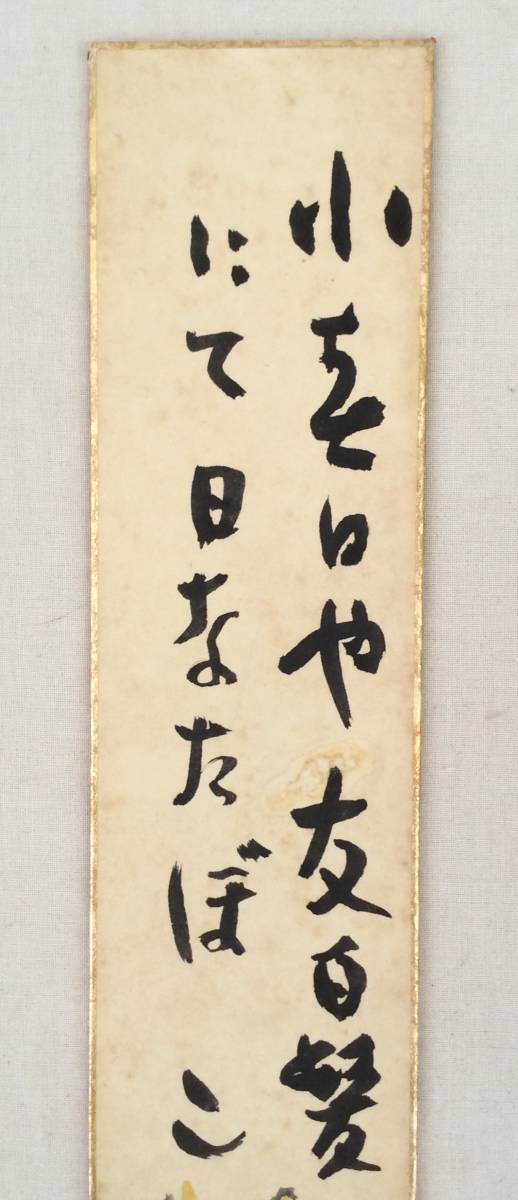 小春日や友白髪
にて日なたぼこ